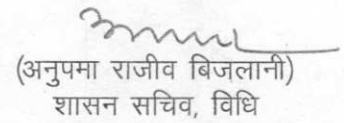 (अनुपमा राजीव बिजलानी)
शासन सचिव, विधि